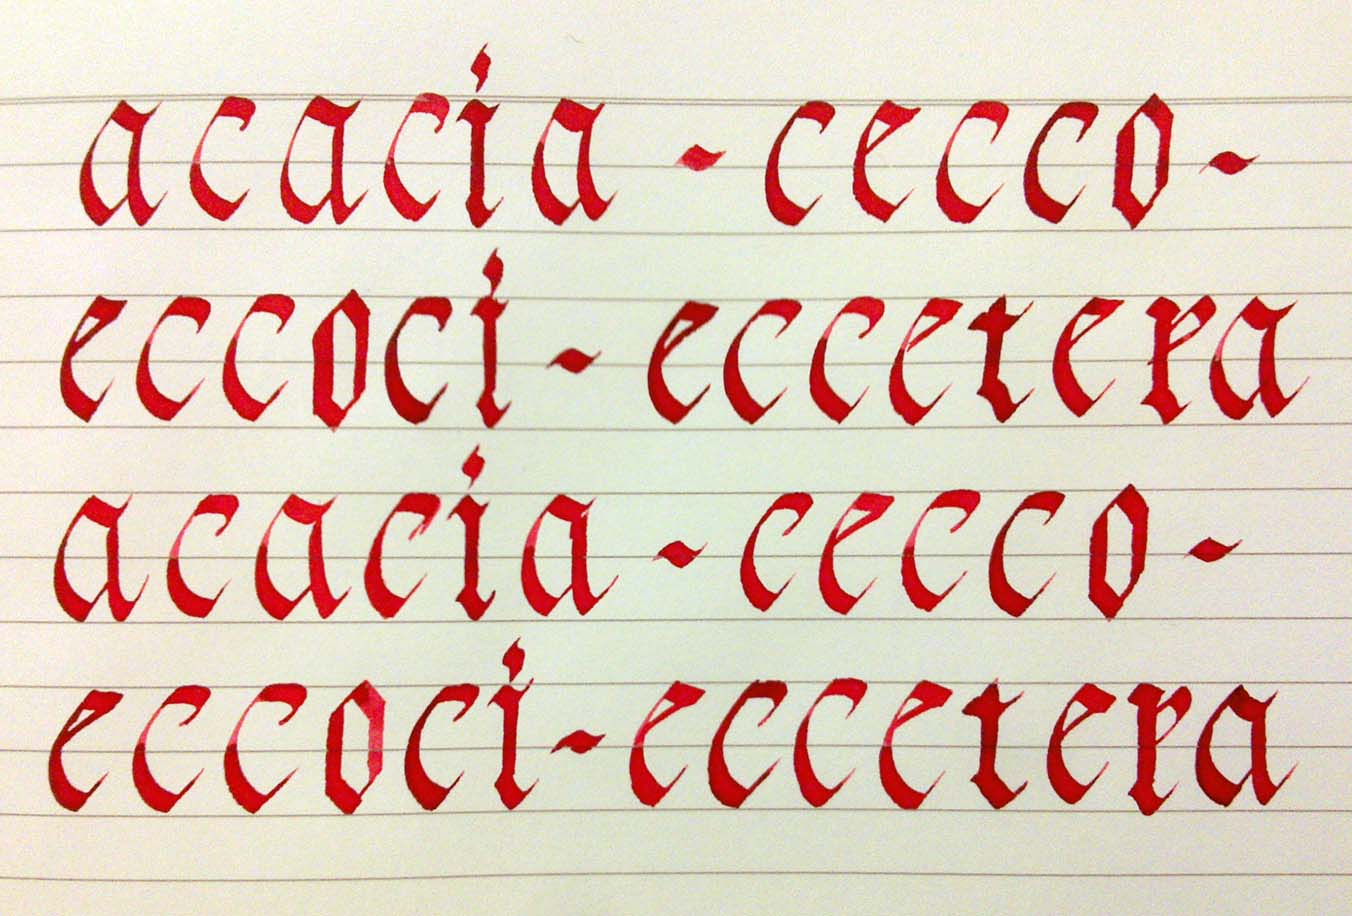 acacia - cecco -
eccoci - eccetera
acacia - cecco -
eccoci - eccetera